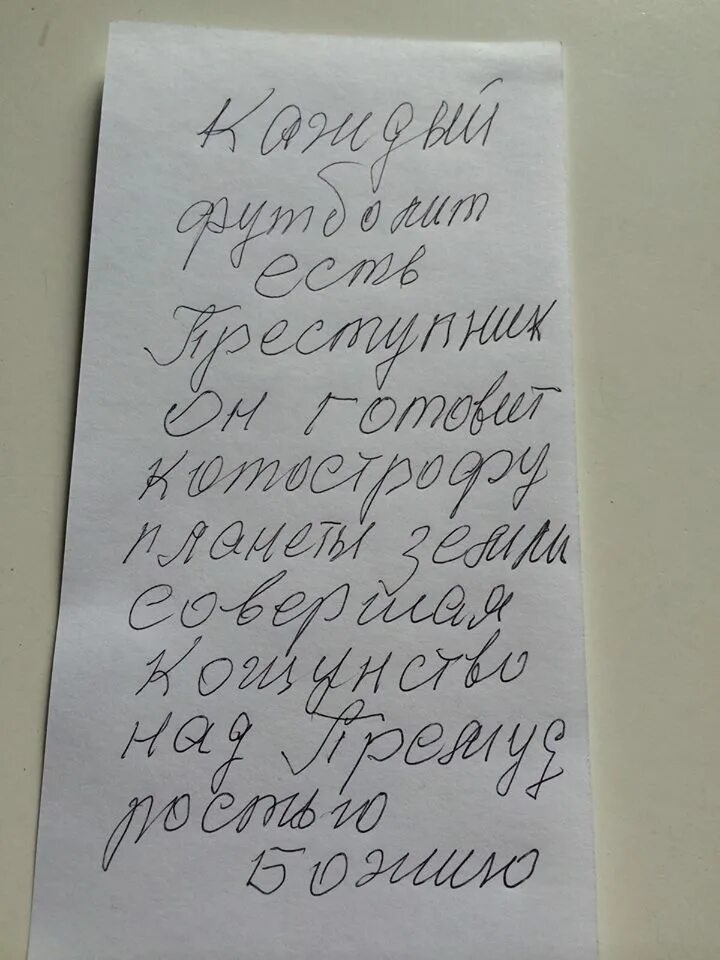 Каждый
футболит
есть
Преступник
он готовит
катострофу
планеты земли
совершая
Кощунство
над Премуд
ростью
Божию